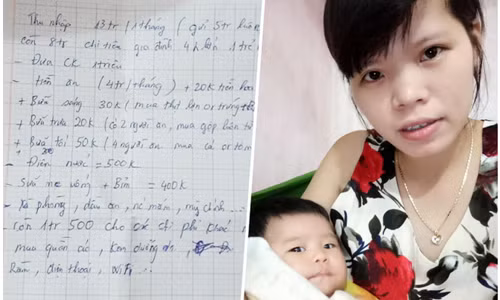 Thu nhập 13tr / 1 tháng ( gửi 5tr
còn 8tr chi tiêu gia đình 4
- Đưa CK 1triệu
- tiền ăn (4tr/tháng) + 20k tiền
+ Bữa sáng 30k ( mua thịt lợn or trứng
+ Bữa trưa 20k ( có 2 người ăn, mua gộp luôn
+ Bữa tối 50k ( 4 người ăn mua cá or tôm
- Điện nước = 500k
- Sữa mẹ uống + Bỉm = 400k
- Xà phòng, dầu ăn, nc mắm, mỳ chính ...
- còn 1tr 500 cho các chi phí khác
mua quần áo, kem dưỡng da,
điện thoại, wifi ..